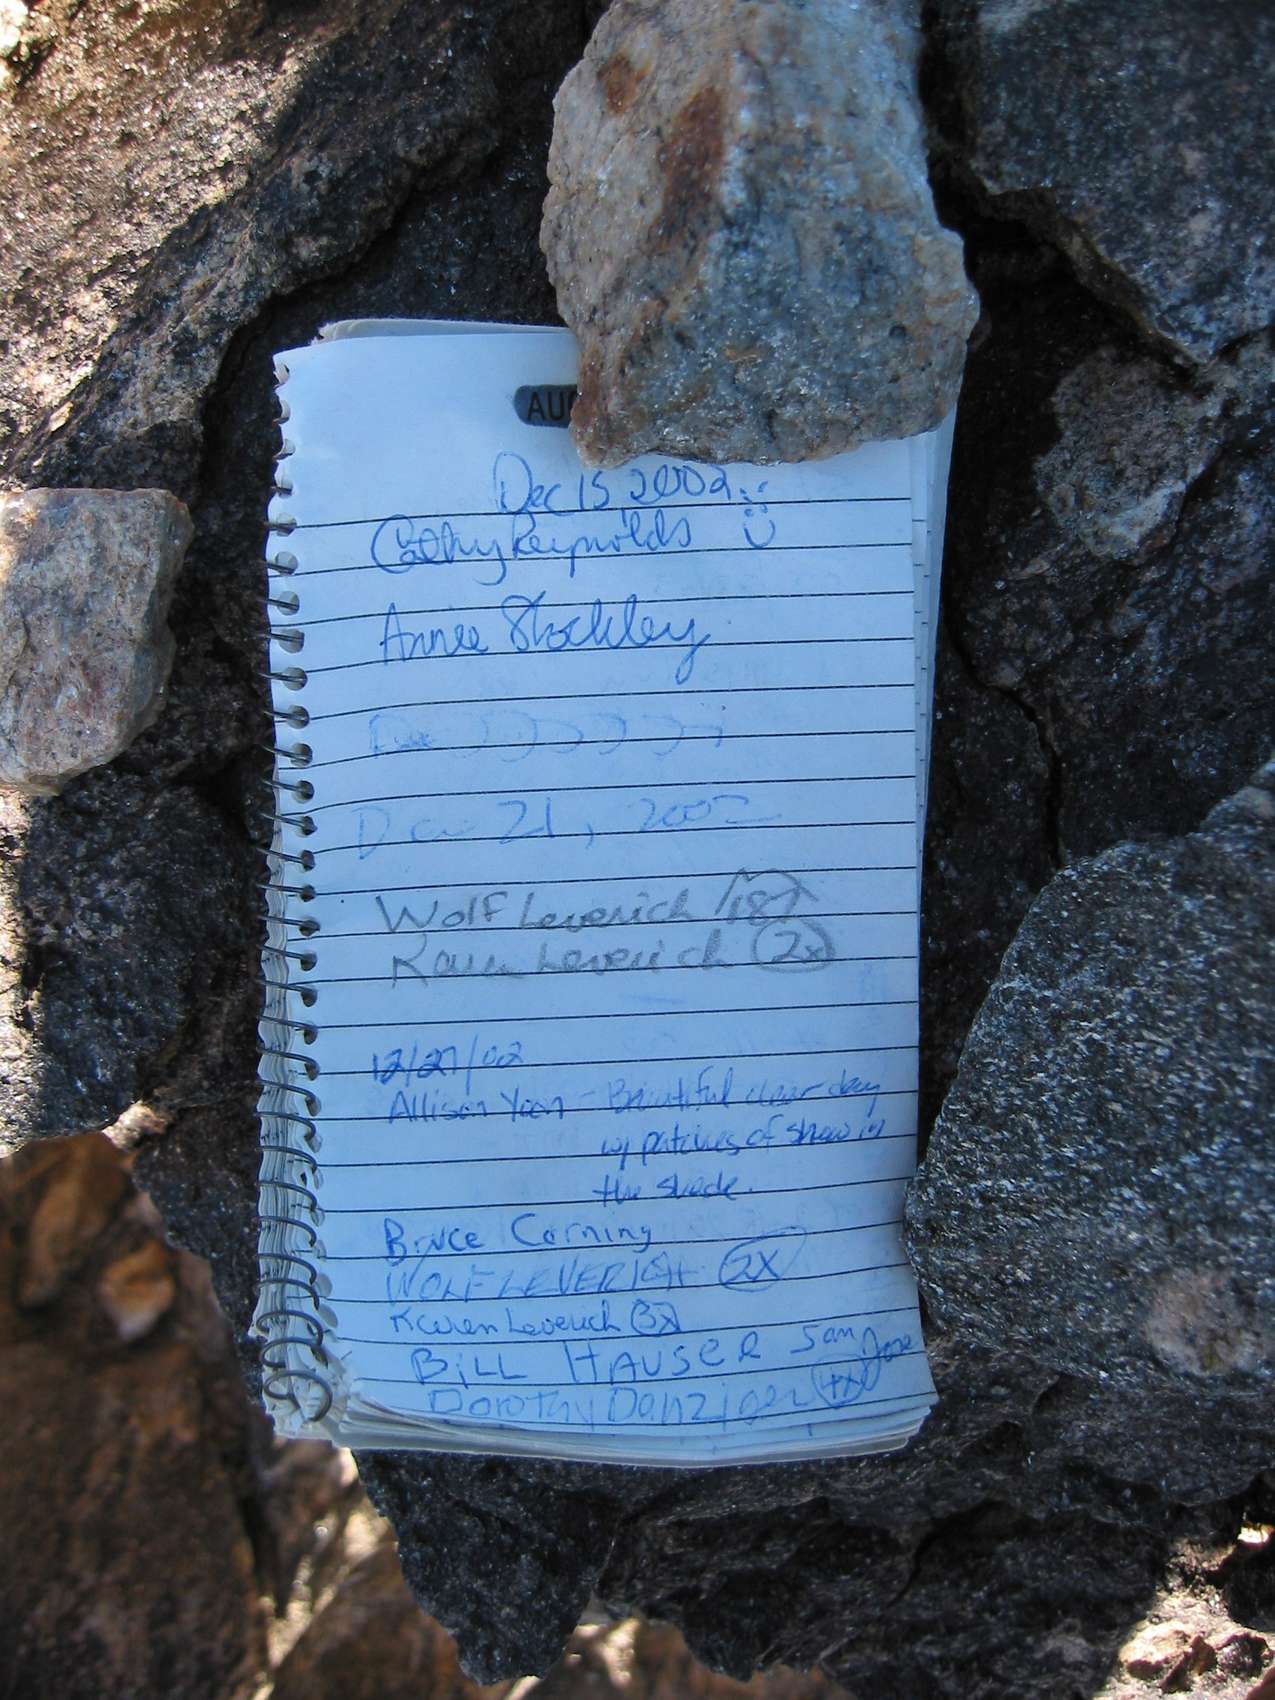 AU
Dec 15, 2002
Cathy Reynolds
Annee Stockley
Dec
Dec 21, 2002
Wolf Leverich 18X
Karen Leverich 2x
12/27/02
Allison Yoon - Beautiful clear day
w/ patches of snow in
the shade.
Bruce Corning
WOLF LEVERICH 2X
Karen Leverich 3X
BILL HAUSER San Jose
Dorothy Danziger 4x